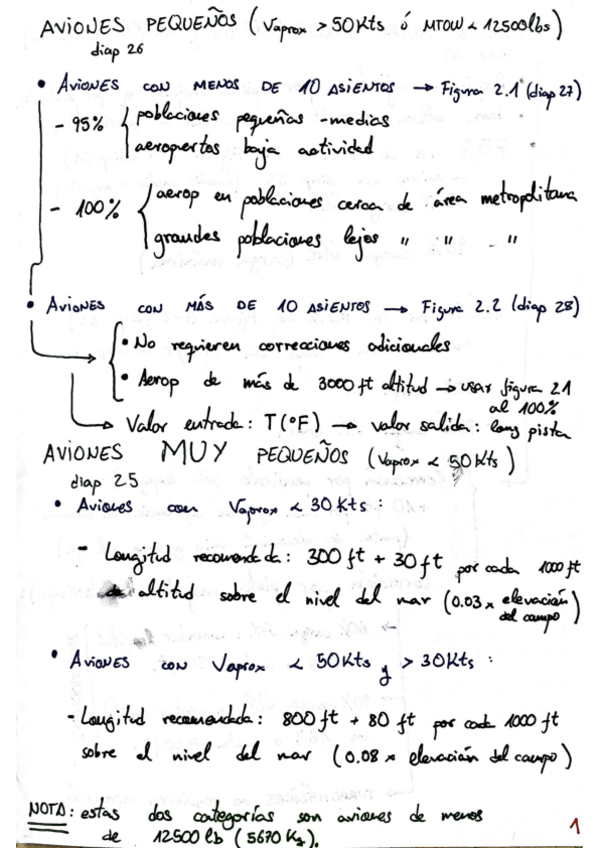 AVIONES PEQUEÑOS (Vaprox > 50Kts ó MTOW < 12500lbs)
diap 26
• AVIONES CON MENOS DE 10 ASIENTOS → Figura 2.1 (diap 27)
- 95% { poblaciones pequeñas - medias
aeropuertos baja actividad
- 100% { aerop en poblaciones cerca de área metropolitana
grandes poblaciones lejos " " - "
• AVIONES CON MÁS DE 10 ASIENTOS → Figura 2.2 (diap 28)
• No requieren correcciones adicionales
• Aerop de más de 3000 ft altitud → usar figura 2.1
al 100%
→ Valor entrada: T(°F) → valor salida: long pista
AVIONES MUY PEQUEÑOS (Vaprox < 50 Kts)
diap 25
• Aviones con Vaprox < 30 Kts:
- Longitud recomendada: 300 ft + 30 ft por cada 1000 ft
altitud sobre el nivel del mar (0.03 x elevación
del campo)
• AVIONES CON Vaprox < 50Kts y > 30Kts:
- Longitud recomendada: 800 ft + 80 ft por cada 1000 ft
sobre el nivel del mar (0.08 x elevación del campo)
NOTA: estas dos categorías son aviones de menos
de 12500 lb (5670 Kg).
1